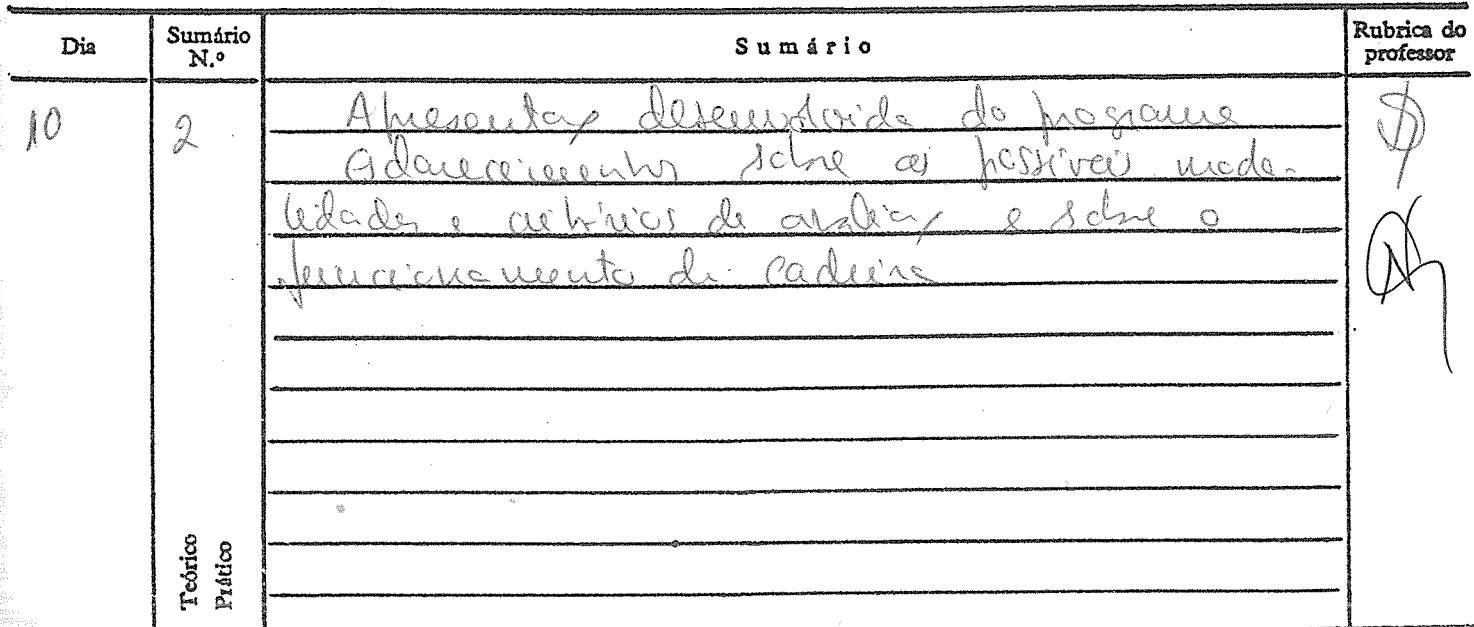 Dia Sumário N.º Sumário Rubrica do professor
10 2 Apresentaç desenvolvida do programa
Esclarecimentos sobre as possíveis moda-
lidades e critérios de avaliaç e sobre o
funcionamento da cadeira
Teórico
Prático